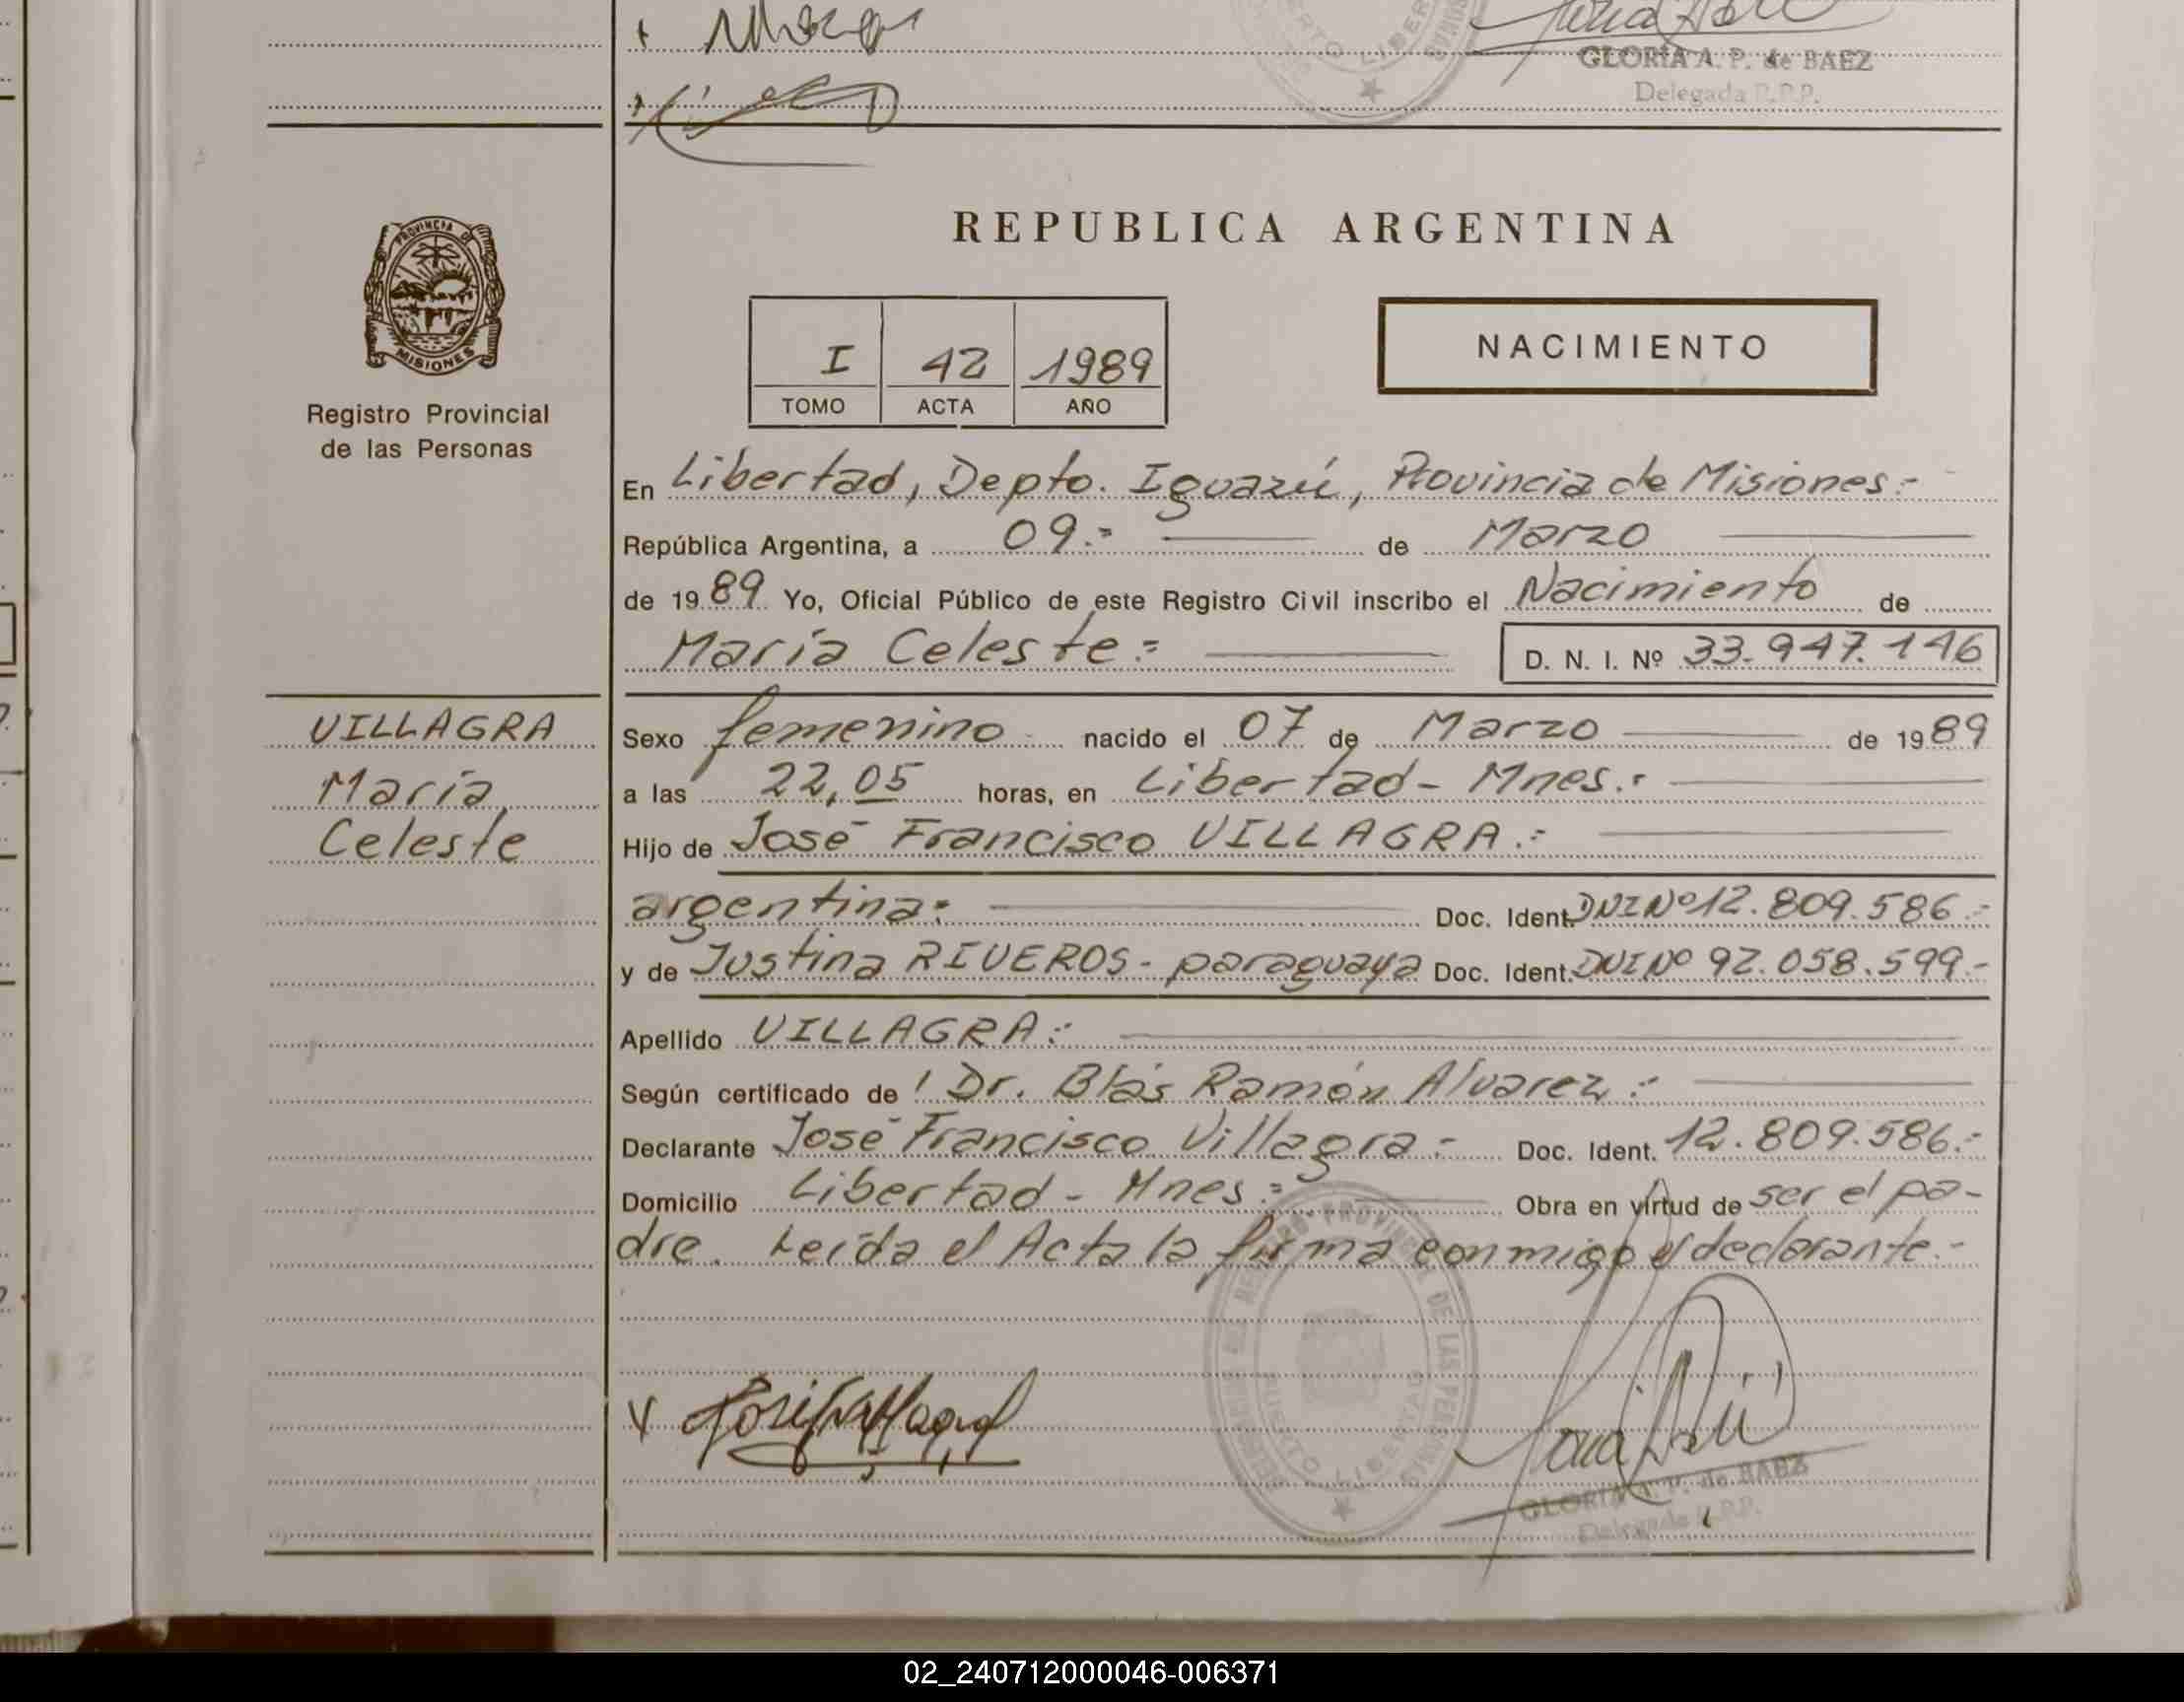 GLORIA A. P. de BAEZ
Delegada R.P.P.
PROVINCIA DE
MISIONES
Registro Provincial
de las Personas
REPUBLICA ARGENTINA
I 42 1989
TOMO ACTA AÑO
NACIMIENTO
En Libertad, Depto. Iguazú, Provincia de Misiones.-
República Argentina, a 09.= de Marzo
de 1989 Yo, Oficial Público de este Registro Civil inscribo el Nacimiento de
María Celeste.=
D. N. I. Nº 33.947.146
VILLAGRA
María
Celeste
Sexo femenino nacido el 07 de Marzo de 1989
a las 22,05 horas, en Libertad - Mnes.:
Hijo de José Francisco VILLAGRA.:
argentina: Doc. Ident. DNI Nº 12.809.586.-
y de Justina RIVEROS - paraguaya Doc. Ident. DNI Nº 92.058.599.-
Apellido VILLAGRA:
Según certificado de l Dr. Blás Ramón Alvarez:
Declarante José Francisco Villagra.- Doc. Ident. 12.809.586.-
Domicilio Libertad - Mnes.= Obra en virtud de ser el pa-
dre. Leída el Acta la firma conmigo el declarante.-
REGISTRO PROVINCIAL DE LAS PERSONAS
LIBERTAD
GLORIA A. P. de BAEZ
Delegada R.P.P.
02_240712000046-006371